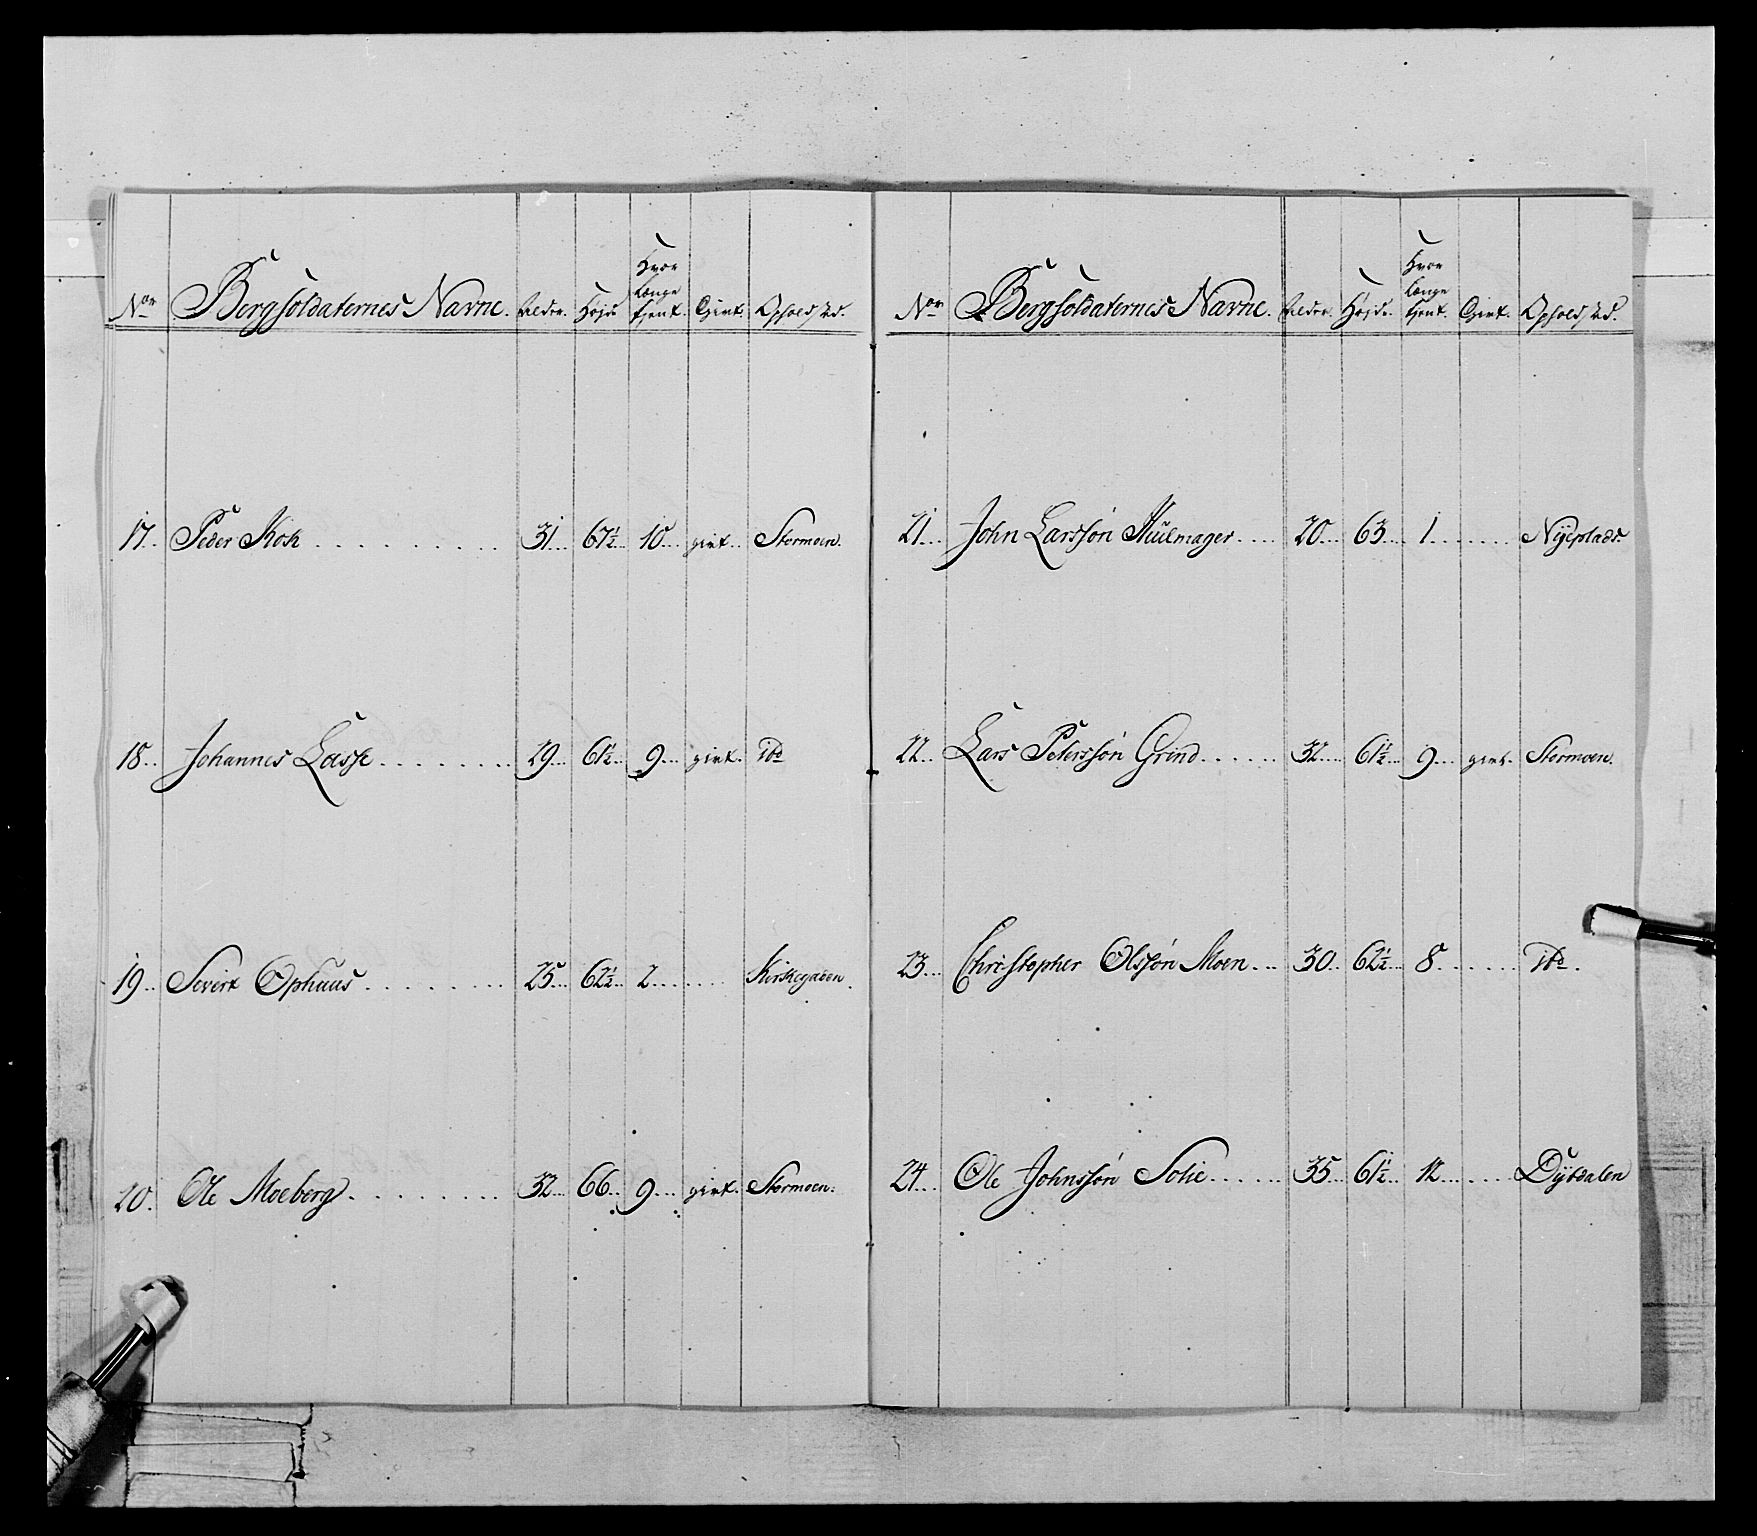 Nor Bergsoldaternes Navne. Alder. Højde Hvor længe tjent. Givt. Ophold/sted.
17. Peder Kok 31 67½ 10 givt. Stormoen.
18. Johannes Lasse 29 61½ 9 givt. Do
19. Sivert Ophuus 25 62½ 2 Kirkegaden
20. Ole Moeberg 32 66 9 givt. Stormoen.
Nor Bergsoldaternes Navne. Alder. Højde. Hvor længe tjent. Givt. Ophold/sted.
21. John Larssøn Huulmager 20 63 1 Nyeplads.
22. Lars Peterssøn Grind 32 61½ 9 givt. Stormoen.
23. Christopher Olssøn Moen 30 62½ 8 Do.
24. Ole Johnssøn Solie 35 61½ 12 Dybdalen